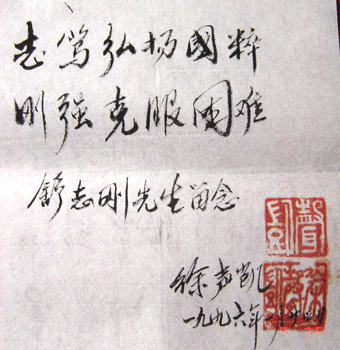 志笃弘扬國粹
刚强克服困难
舒志刚先生留念
徐声凯
一九九六年一月